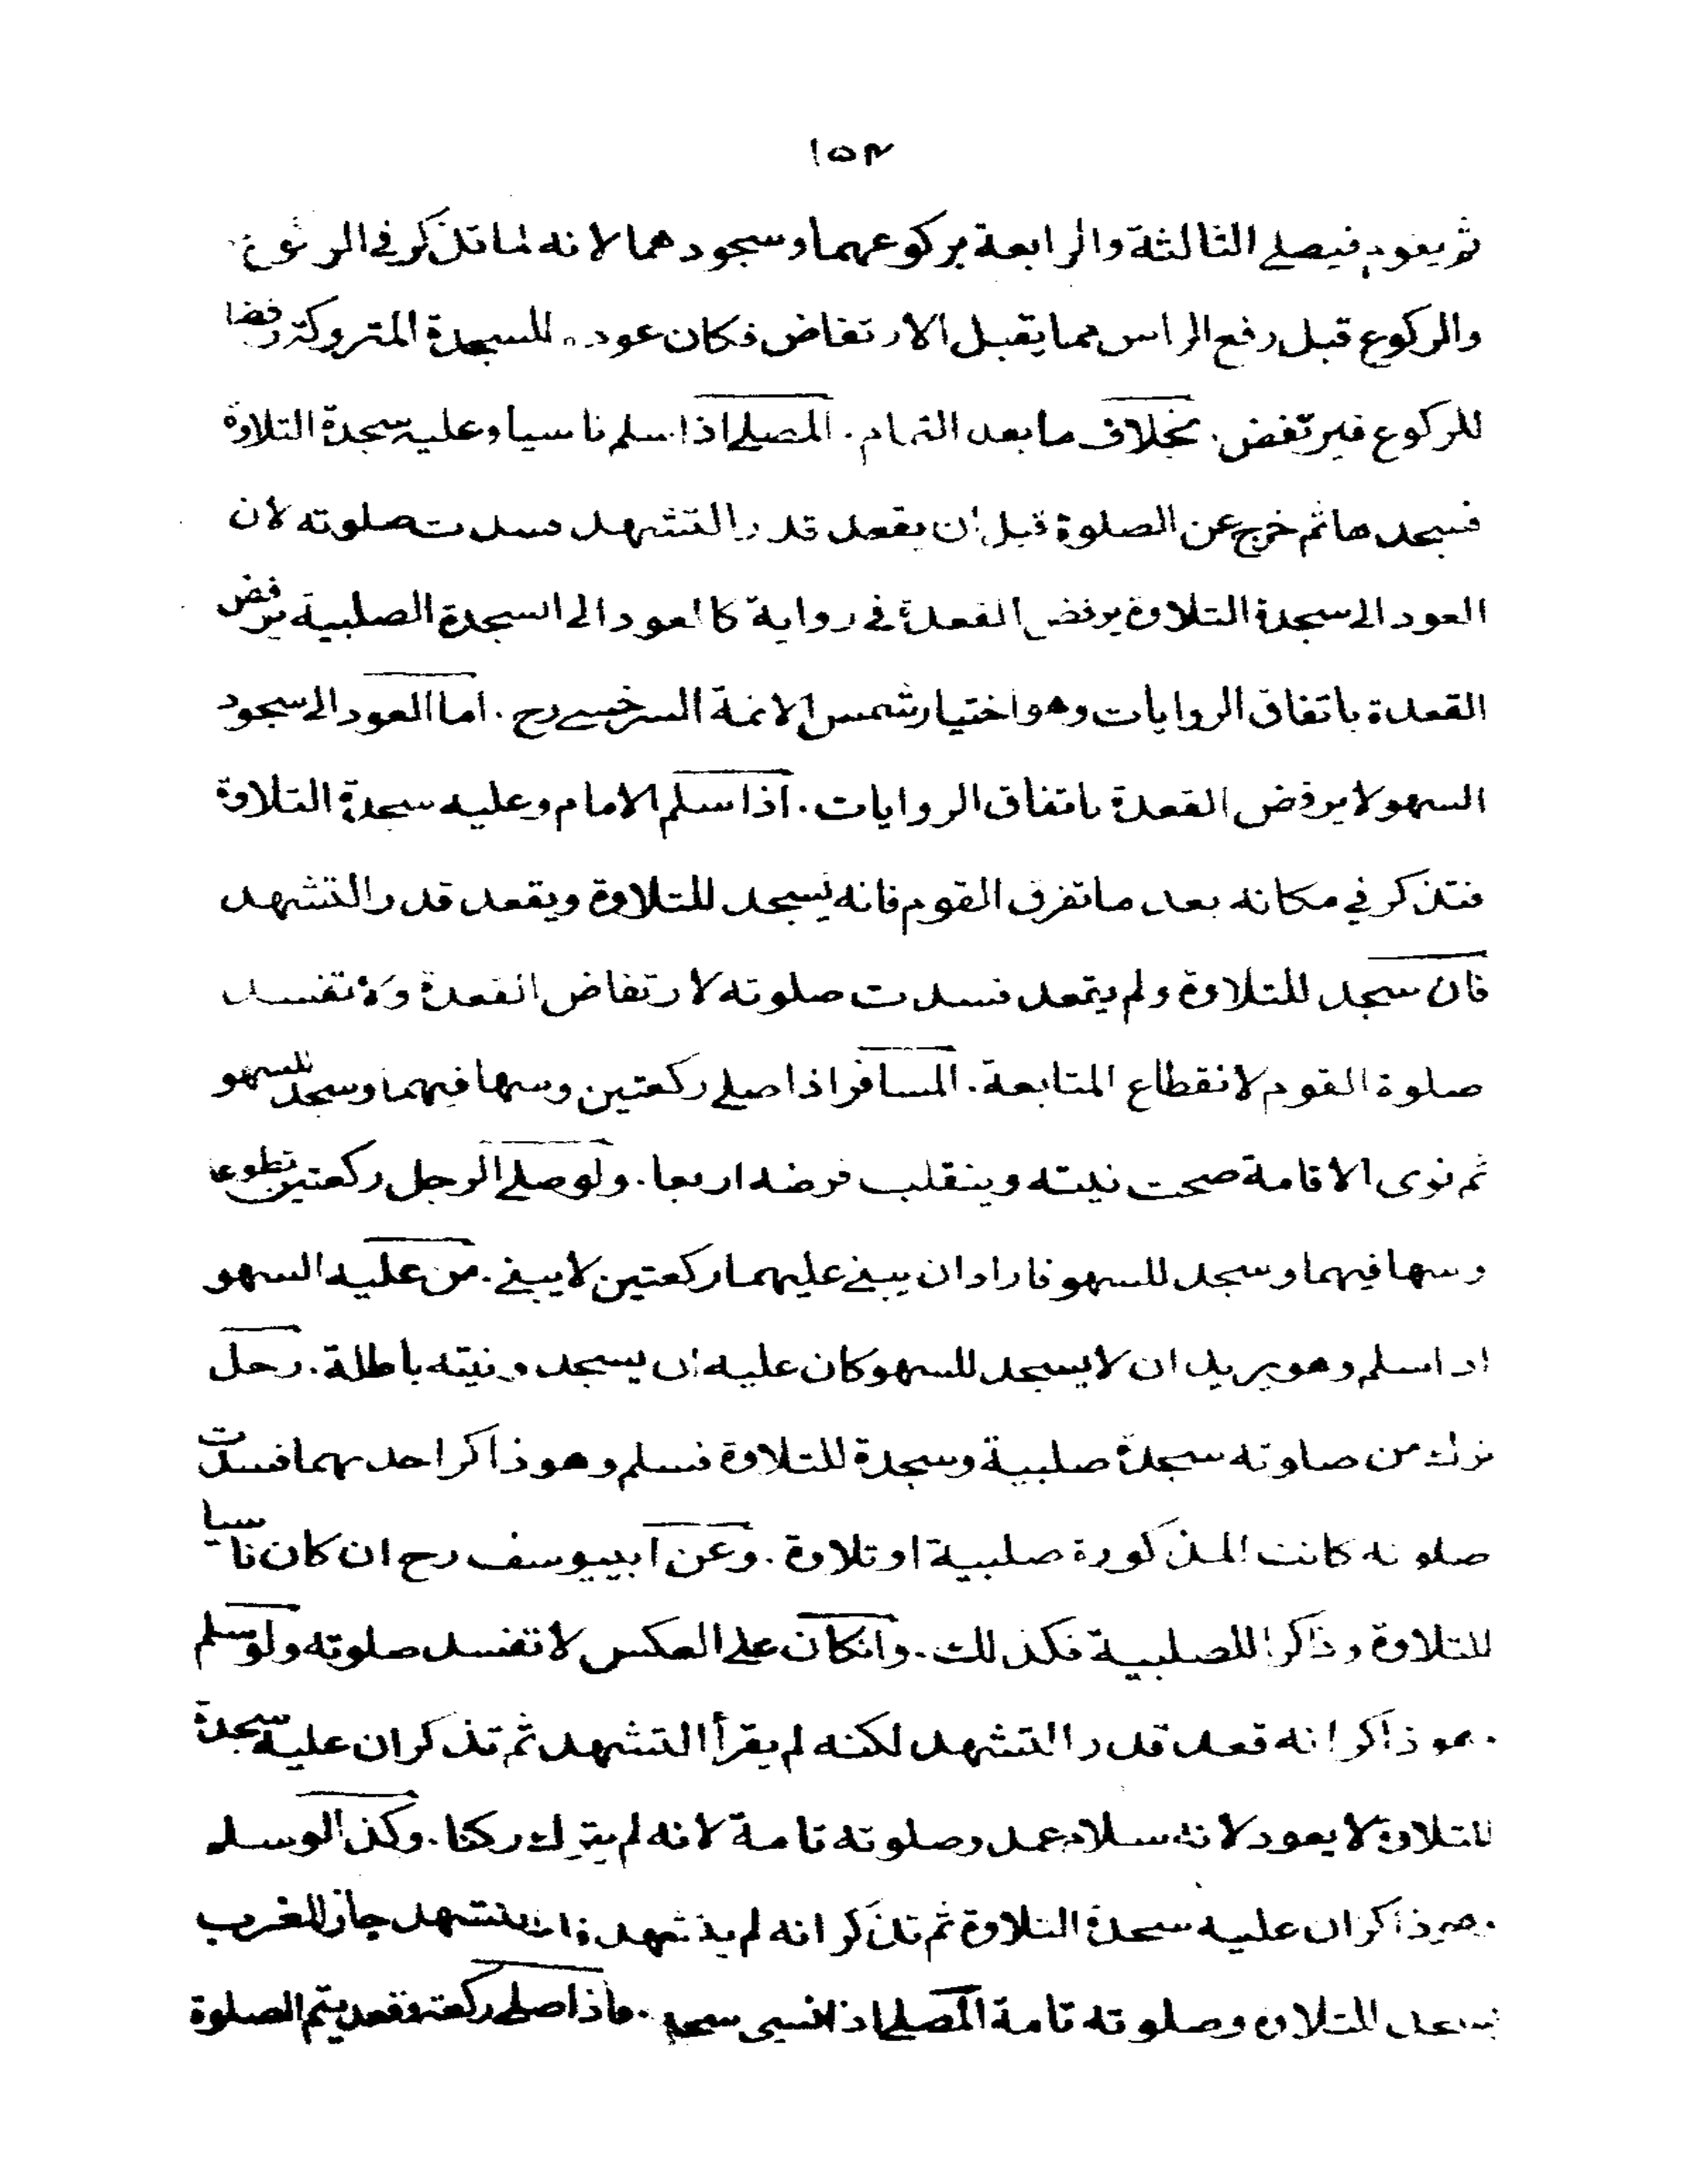 ١٥٣
ثم يعود فيصلے الثالثة والرابعة بركوعهما وسجودهما لانه لما تذكر في الركوع
والركوع قبل رفع الراس مما يقبل الارتفاض فكان عوده للسجدة المتروكة رفضا
للركوع فيرتفض. بخلاف ما بعد التمام. المصلے اذا سلم ناسيا وعليه سجدة التلاوة
فسجدها ثم خرج عن الصلوة قبل ان يقعد قدر التشهد فسدت صلوته لان
العود الى سجدة التلاوة يرفض القعدة في رواية كالعود الى السجدة الصلبية يرفض
القعدة باتفاق الروايات وهو اختيار شمس الائمة السرخسے رح. اما العود الى سجود
السهو لا يرفض القعدة باتفاق الروايات. اذا سلم الامام وعليه سجدة التلاوة
فتذكر في مكانه بعد ما تفرق القوم فانه يسجد للتلاوة ويقعد قدر التشهد
فان سجد للتلاوة ولم يقعد فسدت صلوته لارتفاض القعدة ولا تفسد
صلوة القوم لانقطاع المتابعة. المسافر اذا صلے ركعتين وسها فيهما وسجد للسهو
ثم نوى الاقامة صحت نيته وينقلب فرضه اربعا. ولو صلے الرجل ركعتين تطوعا
وسها فيهما وسجد للسهو فاراد ان يبنے عليهما ركعتين لا يبنے. من عليه السهو
اذا سلم وهو يريد ان لا يسجد للسهو كان عليه ان يسجد ونيته باطلة. رجل
ترك من صلوته سجدة صلبية وسجدة للتلاوة فسلم وهو ذاكر احدىهما فسدت
صلوته كانت المذكورة صلبية او تلاوة. وعن ابييوسف رح ان كان ناسيا
للتلاوة وذاكرا للصلبية فكذلك. وانكان على العكس لا تفسد صلوته ولو سلم
وهو ذاكر انه قعد قدر التشهد لكنه لم يقرأ التشهد ثم تذكر ان عليه سجدة
للتلاوة لا يعود لانه سلام عمد وصلوته تامة لانه لم يترك ركنا. وكذا لو سلم
وهو ذاكر ان عليه سجدة التلاوة ثم تذكر انه لم يتشهد يتشهد جاز للغرب
يسجد للتلاوة وصلوته تامة المصلے اذا نسى سجدة. فاذا صلے ركعة وقعد يتم الصلوة